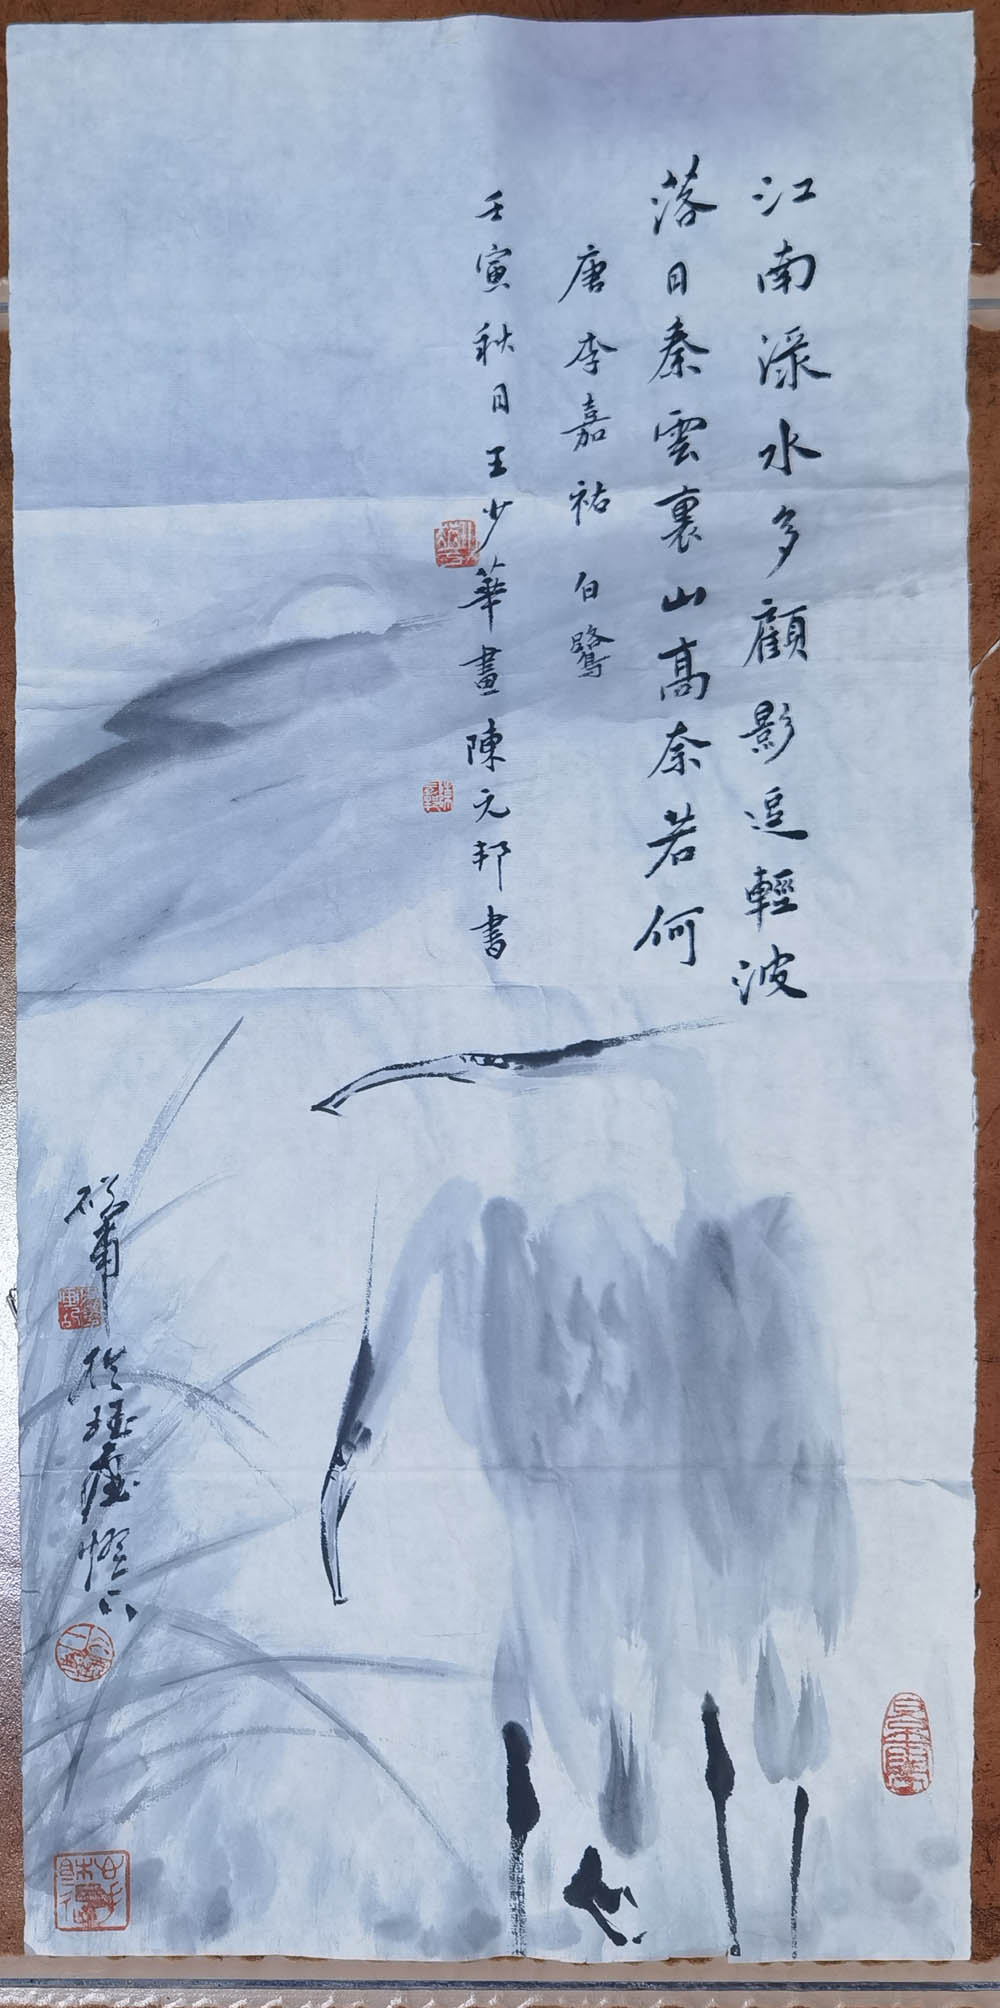 江南渌水多顧影逗輕波
落日秦雲裏山高奈若何
唐李嘉祐白鷺
壬寅秋日王少華畫陳元邦書